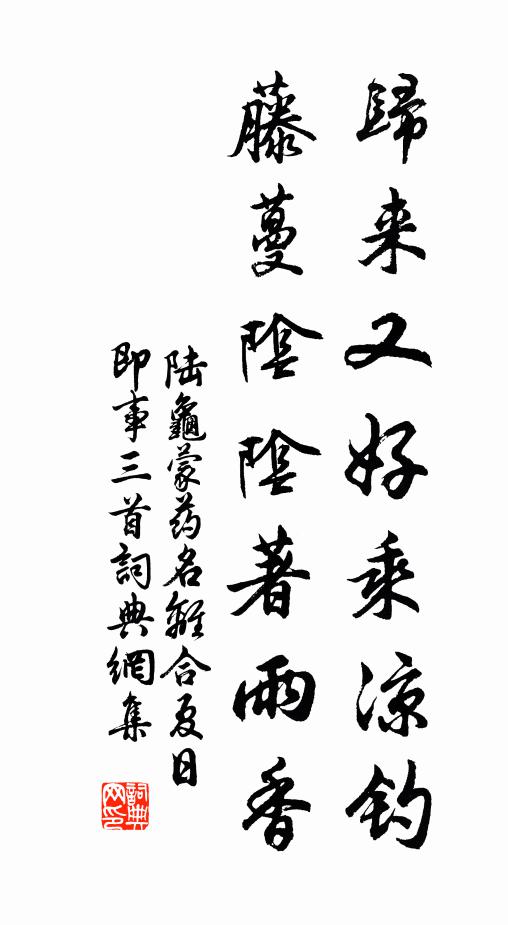 歸来又好乘涼釣
藤蔓陰陰著雨香
陸龜蒙药名離合夏日
即事三首詞典網集
詞典网印